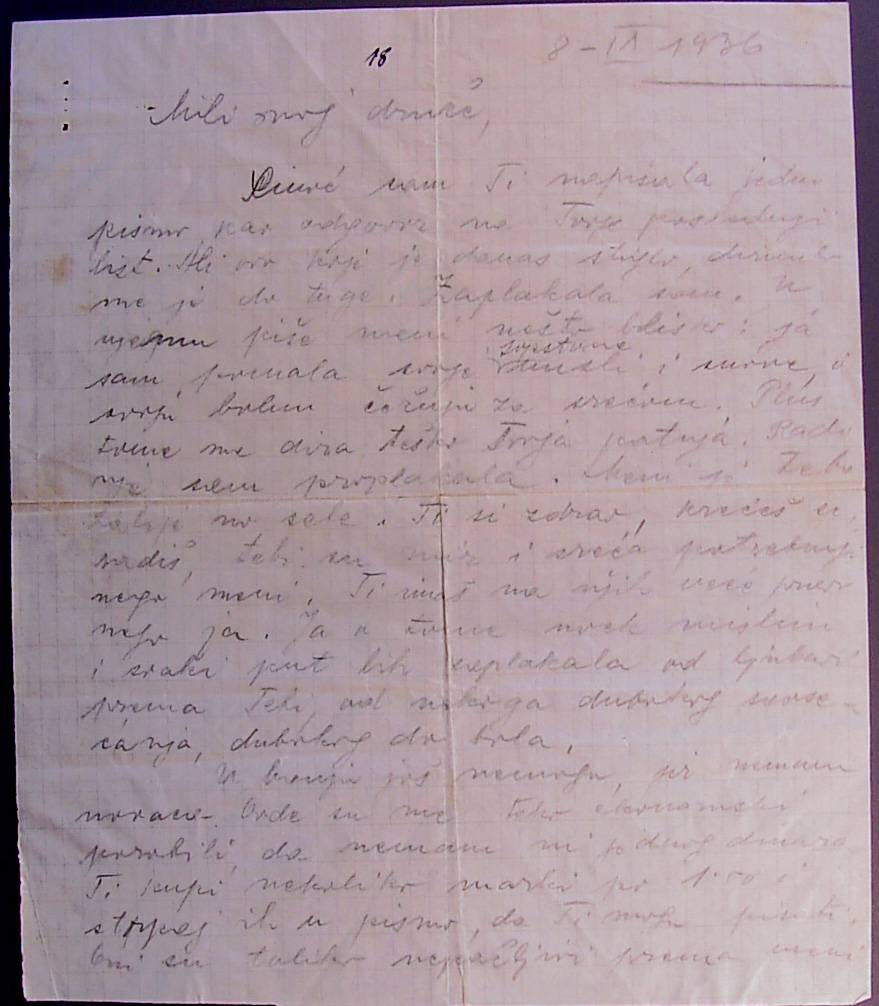 18
8-IX 1936
Mili moj druže,
Sinoć sam Ti napisala jedno
pismo kao odgovor na Tvoje poslednji
list. Ali ovo koje je danas stiglo, dirnulo
me je do tuge. Zaplakala sam. U
njemu piše meni nešto blisko: ja
sam poznala svoje sopstvene misli i snove, i
svoju bolnu čežnju za srećom. Plus
tome me dira teško Tvoja patnja. Radi
nje sam proplakala. Meni je Tebe
žalije no sebe. Ti si zdrav, krećeš se,
radiš, tebi su mir i sreća potrebniji
nego meni. Ti imaš na njih veće pravo
nego ja. Ja o tome uvek mislim
i svaki put bih zaplakala od ljubavi
prema Tebi, od nekoga dubokog saose-
ćanja, dubokog do bola.
U banju još nemogu, jer nemam
novaca. Ovde su me tako ekonomski
porobili, da nemam ni jednog dinara.
Ti kupi nekoliko marki po 1.50 i
strpaj ih u pismo, da Ti mogu pisati.
Oni su toliko nepažljivi prema meni